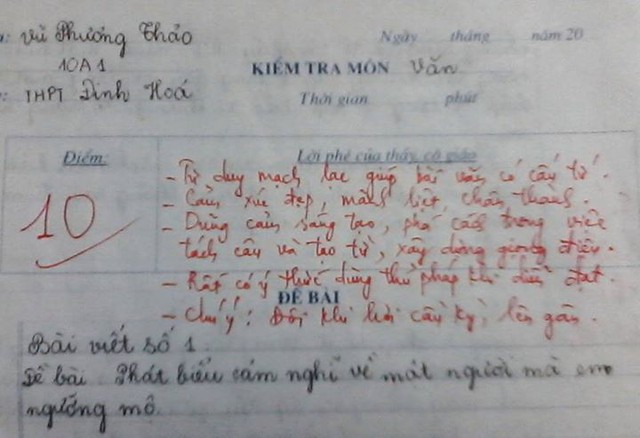 Vũ Phương Thảo
Ngày tháng năm 20
10A1
KIỂM TRA MÔN Văn
THPT Định Hoá
Thời gian phút
Điểm:
Lời phê của thầy, cô giáo
10
- Tư duy mạch lạc giúp bài văn có cấu tứ.
- Cảm xúc đẹp, mãnh liệt, chân thành.
- Dũng cảm, sáng tạo, phá cách trong việc
tách câu và tạo từ, xây dựng giọng điệu.
- Rất có ý thức dùng thủ pháp khi diễn đạt.
ĐỀ BÀI
- Chú ý: Đôi khi hơi cầu kỳ, lên gân.
Bài viết số 1
Đề bài. Phát biểu cảm nghĩ về một người mà em
ngưỡng mộ.